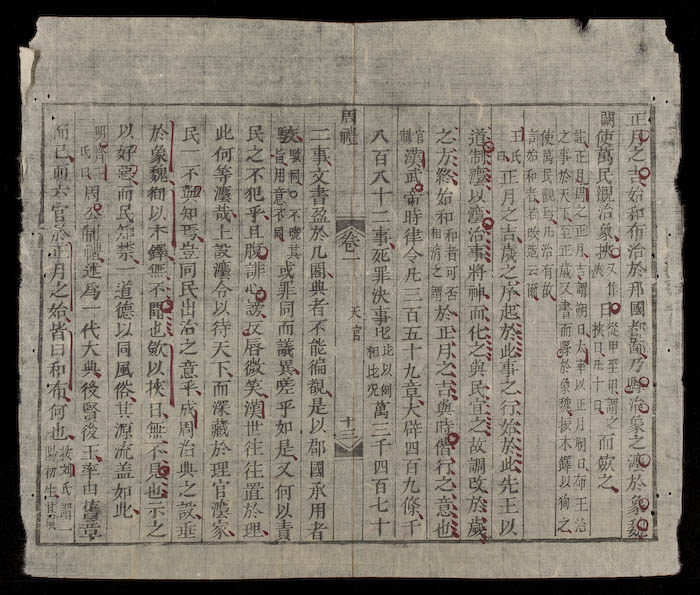 正月之吉始和布治於邦國都鄙乃縣治象之灋於象魏
闕使萬民觀治象挾又作浹日從甲至甲謂之挾日凡十日而斂之
註正月周之正月吉謂朔日大宰以正月朔日布王治
之事於天下至正歲又書而縣於象魏振木鐸以徇之
使萬民觀焉凡治有故
言始和者若改造云爾
王氏曰正月之吉歲之序起於此事之行始於此先王以
道制灋以灋治事將神而化之與民宜之故調改於歲
之方終始和和者可否相濟之謂於正月之吉與時偕行之意也
官制漢武帝時律令凡三百五十九章大辟四百九條千
八百八十二事死罪決事比比以例相比況萬三千四百七十
周禮 卷一 天官 十三
二事文書盈於几閣典者不能徧覩是以郡國承用者
駮駮與駁同不曉其旨用意不同或罪同而議異嗟乎如是又何以責
民之不犯乎且腹誹心謗反唇微笑漢世往往置於理
此何等灋哉上設灋令以待天下而深藏於理官灋家
民一不與知焉豈同民出治之意乎成周治典之設垂
於象魏徇以木鐸無不聞也斂以挾日無不見也示之
以好惡而民知禁一道德以同風俗其源流蓋如此
明齊王氏曰周公制禮遂爲一代大典後賢後王率由舊章
而已而六官於正月之始皆曰和布何也按劉氏謂一陽初生